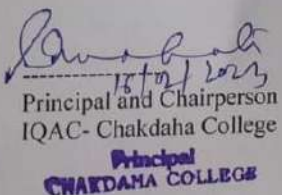 16/02/2023
Principal and Chairperson
IQAC- Chakdaha College
Principal
CHAKDAHA COLLEGE